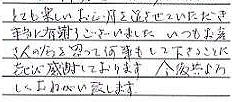 とても楽しいお正月を過させていただき
本当に有難うございました いつもお客
さんの方を思って何事もして下さることに
喜び感謝しております 今後共よろ
しくおねがい致します